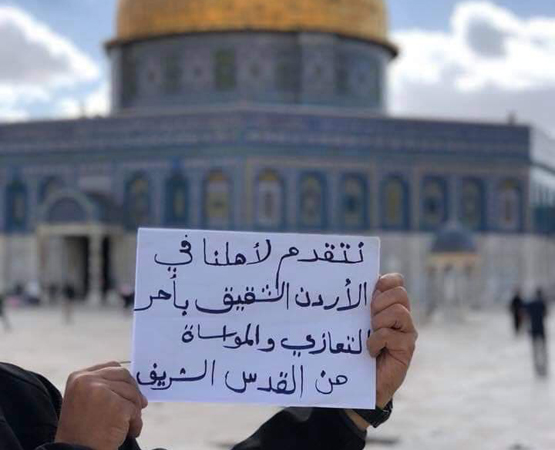 نتقدم لأهلنا في
الأردن الشقيق بأحر
التعازي والمواساة
من القدس الشريف